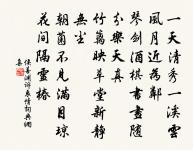 一天清秀一溪雲
風月近為鄰
琴劍酒棋書畫隨
分樂天真
竹籬映草堂新靜
無塵
朝菌不見滿目瓊
花間隔靈椿
侯善淵詩意情詞典網
集